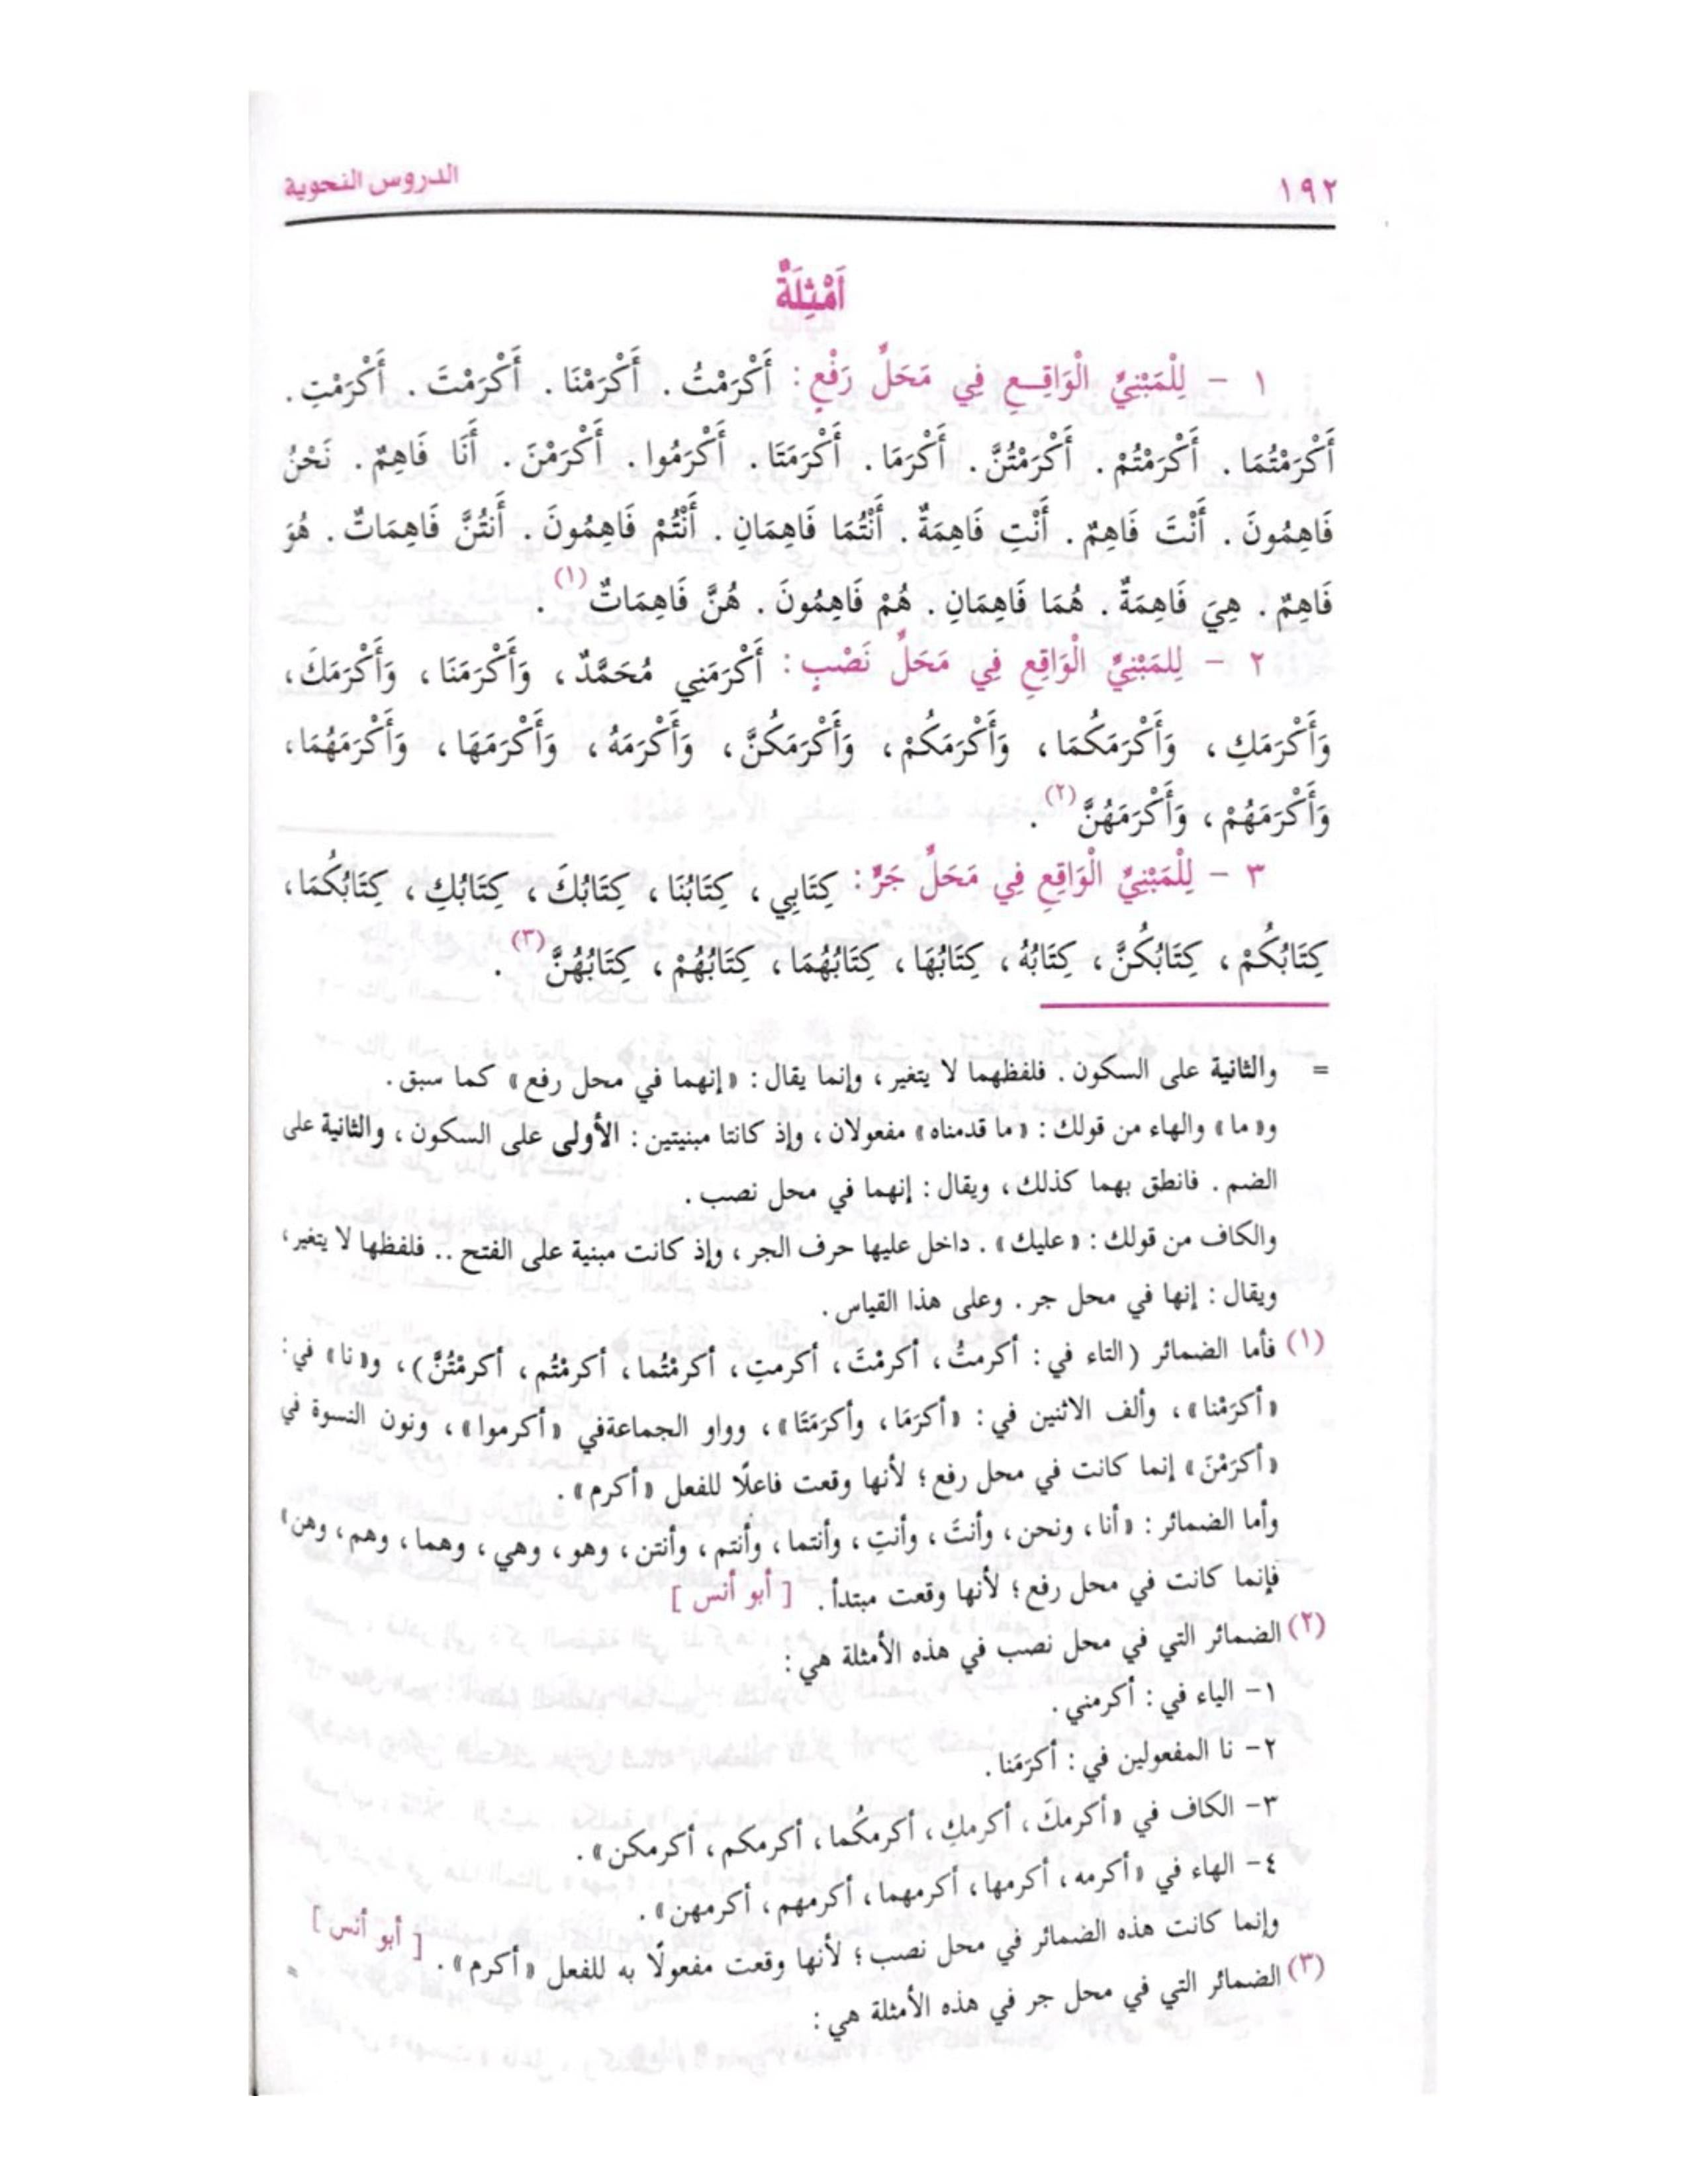 ١٩٢
الدروس النحوية
أَمْثِلَةٌ
١ - لِلْمَبْنِيِّ الْوَاقِعِ فِي مَحَلِّ رَفْعٍ : أَكْرَمْتُ . أَكْرَمْنَا . أَكْرَمْتَ . أَكْرَمْتِ .
أَكْرَمْتُمَا . أَكْرَمْتُمْ . أَكْرَمْتُنَّ . أَكْرَمَا . أَكْرَمَتَا . أَكْرَمُوا . أَكْرَمْنَ . أَنَا فَاهِمٌ . نَحْنُ
فَاهِمُونَ . أَنْتَ فَاهِمٌ . أَنْتِ فَاهِمَةٌ . أَنْتُمَا فَاهِمَانِ . أَنْتُمْ فَاهِمُونَ . أَنتُنَّ فَاهِمَاتٌ . هُوَ
فَاهِمٌ . هِيَ فَاهِمَةٌ . هُمَا فَاهِمَانِ . هُمْ فَاهِمُونَ . هُنَّ فَاهِمَاتٌ (١) .
٢ - لِلمَبْنِيِّ الْوَاقِعِ فِي مَحَلِّ نَصْبٍ : أَكْرَمَنِي مُحَمَّدٌ ، وَأَكْرَمَنَا ، وَأَكْرَمَكَ ،
وَأَكْرَمَكِ ، وَأَكْرَمَكُمَا ، وَأَكْرَمَكُمْ ، وَأَكْرَمَكُنَّ ، وَأَكْرَمَهُ ، وَأَكْرَمَهَا ، وَأَكْرَمَهُمَا ،
وَأَكْرَمَهُمْ ، وَأَكْرَمَهُنَّ (٢) .
٣ - لِلْمَبْنِيِّ الْوَاقِعِ فِي مَحَلِّ جَرٍّ : كِتَابِي ، كِتَابُنَا ، كِتَابُكَ ، كِتَابُكِ ، كِتَابُكُمَا ،
كِتَابُكُمْ ، كِتَابُكُنَّ ، كِتَابُهُ ، كِتَابُهَا ، كِتَابُهُمَا ، كِتَابُهُمْ ، كِتَابُهُنَّ (٣) .
= والثانية على السكون . فلفظهما لا يتغير ، وإنما يقال : « إنهما في محل رفع » كما سبق .
و« ما » والهاء من قولك : « ما قدمناه » مفعولان ، وإذ كانتا مبنيتين : الأولى على السكون ، والثانية على
الضم . فانطق بهما كذلك ، ويقال : إنهما في محل نصب .
والكاف من قولك : « عليك » . داخل عليها حرف الجر ، وإذ كانت مبنية على الفتح .. فلفظها لا يتغير ،
ويقال : إنها في محل جر . وعلى هذا القياس .
(١) فأما الضمائر (التاء في : أكرمتُ ، أكرمْتَ ، أكرمتِ ، أكرمْتُما ، أكرمْتُم ، أكرمْتُنَّ) ، و« نا » في :
« أكرَمْنا » ، وألف الاثنين في : « أكرَمَا ، وأكرَمَتَا » ، وواو الجماعةفي « أكرموا » ، ونون النسوة في
« أكرَمْنَ » إنما كانت في محل رفع ؛ لأنها وقعت فاعلًا للفعل « أكرم » .
وأما الضمائر : « أنا ، ونحن ، وأنتَ ، وأنتِ ، وأنتما ، وأنتم ، وأنتن ، وهو ، وهي ، وهما ، وهم ، وهن »
فإنما كانت في محل رفع ؛ لأنها وقعت مبتدأ . [ أبو أنس ]
(٢) الضمائر التي في محل نصب في هذه الأمثلة هي :
١- الياء في : أكرمني .
٢- نا المفعولين في : أكرَمَنا .
٣- الكاف في « أكرمكَ ، أكرمكِ ، أكرمكُما ، أكرمكم ، أكرمكن » .
٤- الهاء في « أكرمه ، أكرمها ، أكرمهما ، أكرمهم ، أكرمهن » .
وإنما كانت هذه الضمائر في محل نصب ؛ لأنها وقعت مفعولًا به للفعل « أكرم » . [ أبو أنس ]
(٣) الضمائر التي في محل جر في هذه الأمثلة هي : =